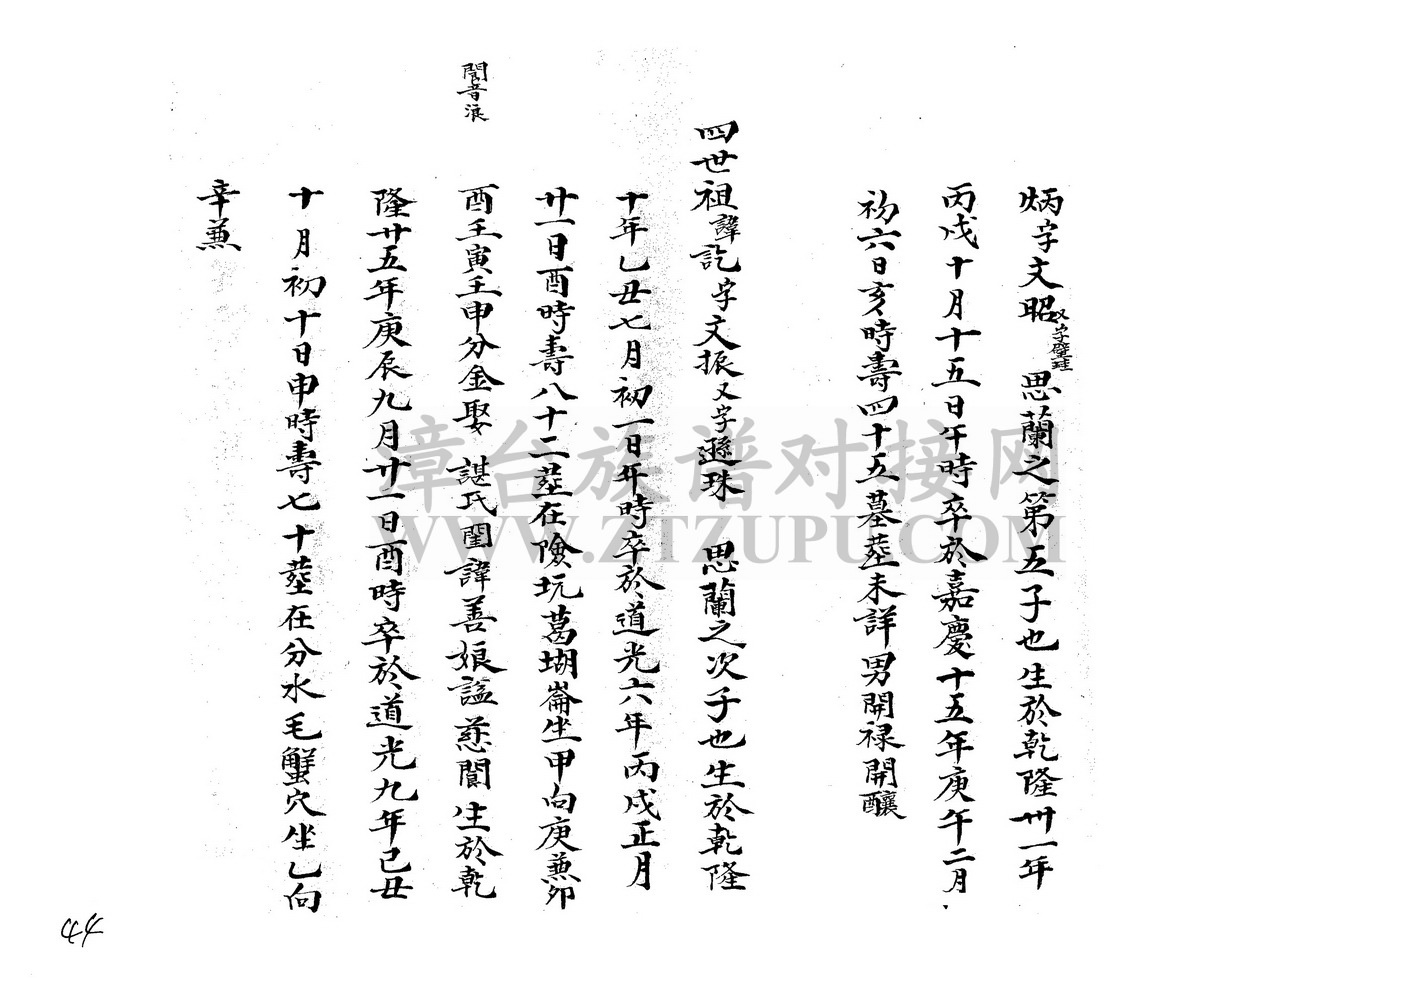 炳字文昭又字璧珪思蘭之第五子也生於乾隆卅一年
丙戌十月十五日午時卒於嘉慶十五年庚午二月
初六日亥時壽四十五墓塟未詳男開祿開釀
四世祖諱訖字文振又字遜珠思蘭之次子也生於乾隆
十年乙丑七月初一日午時卒於道光六年丙戌正月
廿一日酉時壽八十二塟在險坑葛瑚崙坐甲向庚兼卯
酉壬寅壬申分金娶諶氏閨諱善娘謚慈閬生於乾
閬音浪
隆廿五年庚辰九月廿一日酉時卒於道光九年已丑
十月初十日申時壽七十塟在分水毛蟹穴坐乙向
辛兼
44
漳台族谱对接网
WWW.ZTZUPU.COM